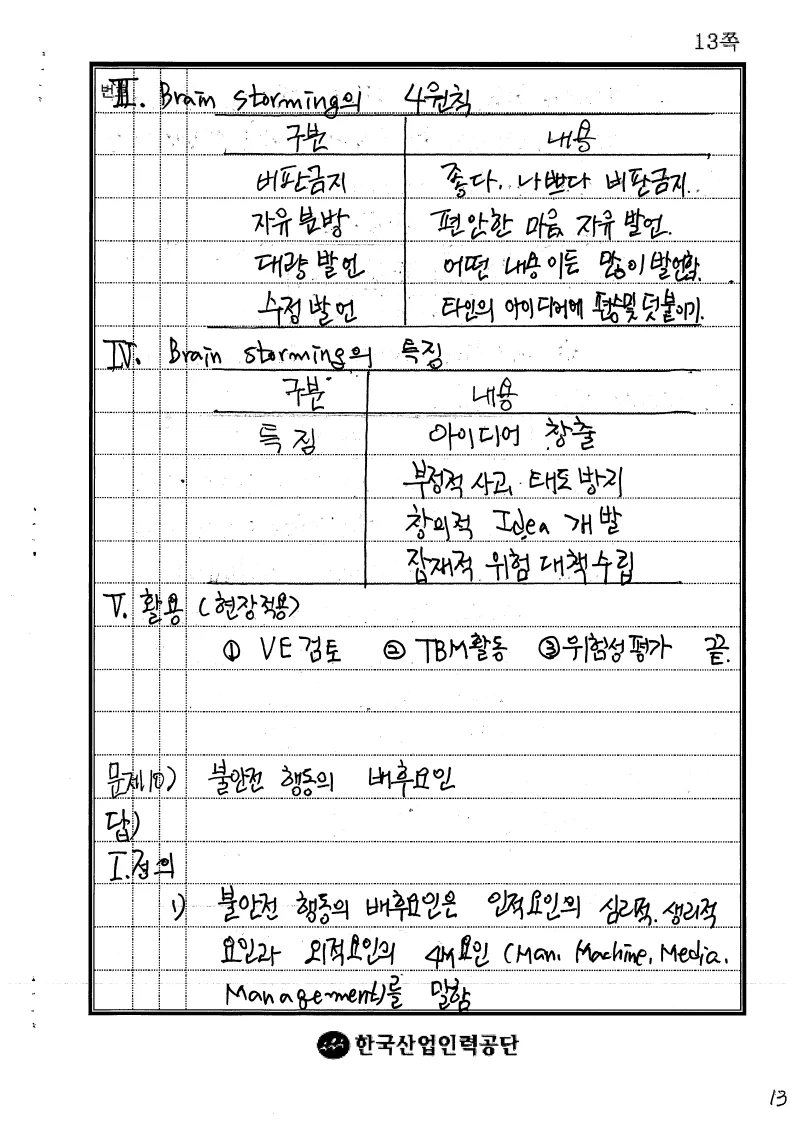 13쪽
Ⅲ. Brain storming의 4원칙
구분 내용
비판금지 좋다. 나쁘다 비판금지.
자유분방 편안한 마음 자유 발언.
대량 발언 어떤 내용이든 많이 발언함.
수정 발언 타인의 아이디어에 편승및 덧붙이기.
Ⅳ. Brain storming의 특징
구분 내용
특징 아이디어 창출
부정적 사고, 태도 방지
창의적 Idea 개발
잠재적 위험 대책 수립
Ⅴ. 활용 (현장적용)
① VE 검토 ② TBM 활동 ③ 위험성 평가 끝.
문제10) 불안전 행동의 배후요인
답)
Ⅰ. 정의
1) 불안전 행동의 배후요인은 인적요인의 심리적. 생리적
요인과 외적요인의 4M요인 (Man. Machine, Media.
Management)를 말함
한국산업인력공단
13